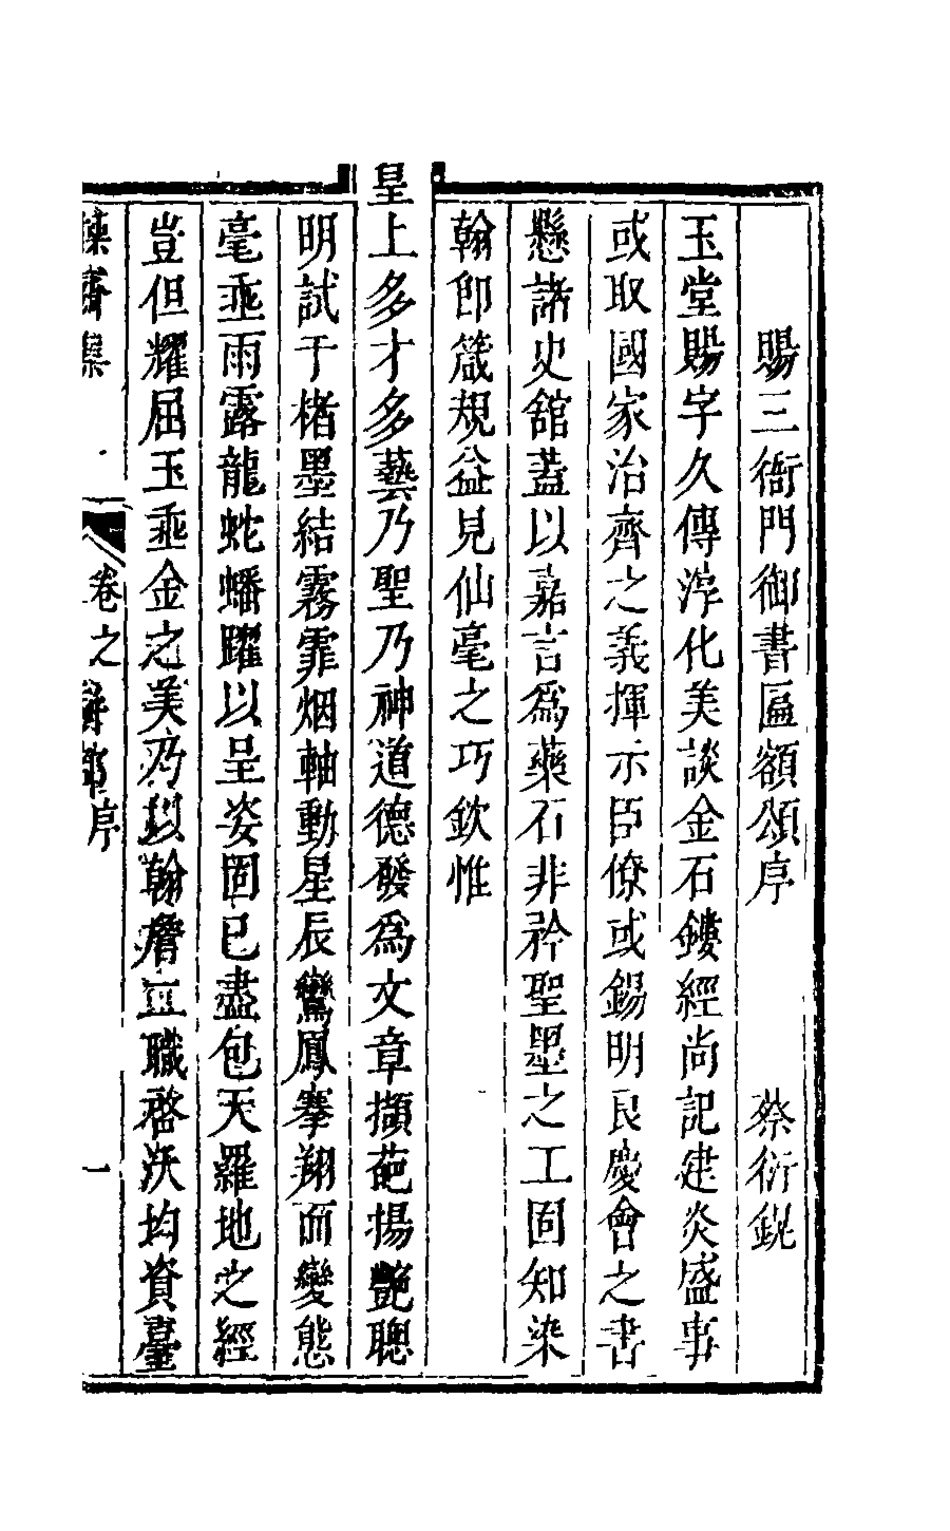 賜三衙門御書匾額頌序 蔡衍鎤
玉堂賜字久傳淳化美談金石鏤經尚記建炎盛事
或取國家治齊之義揮示臣僚或錫明良慶會之書
懸諸史舘蓋以嘉言爲藥石非矜聖墨之工固知染
翰卽箴規益見仙毫之巧欽惟
皇上多才多藝乃聖乃神道德發爲文章擷葩揚艷聰
明試于楮墨結霧霏烟軸動星辰鸞鳳搴翔而變態
毫垂雨露龍蛇蟠躍以呈姿固已盡包天羅地之經
豈但耀屈玉垂金之美乃以翰詹並職啓沃均資臺
齋集
卷之
序
一